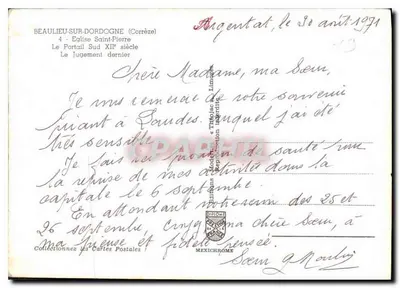 BEAULIEU-SUR-DORDOGNE (Corrèze)
4 - Eglise Saint-Pierre
Le Portail Sud XIIe siècle
Le Jugement dernier
Argentat, le 30 août 1971
Chère Madame, ma Sœur,
Je vous remercie de votre souvenir
puisant à Lourdes auquel j'ai été
très sensible.
Je fais de santé pour
la reprise de mes activités dans la
capitale le 6 septembre.
En attendant notre réunion des 25 et
26 septembre, ma chère Sœur, à
ma pieuse et fidèle pensée.
Sœur G Moulin
Collectionnez les Cartes Postales
MEXICHROME